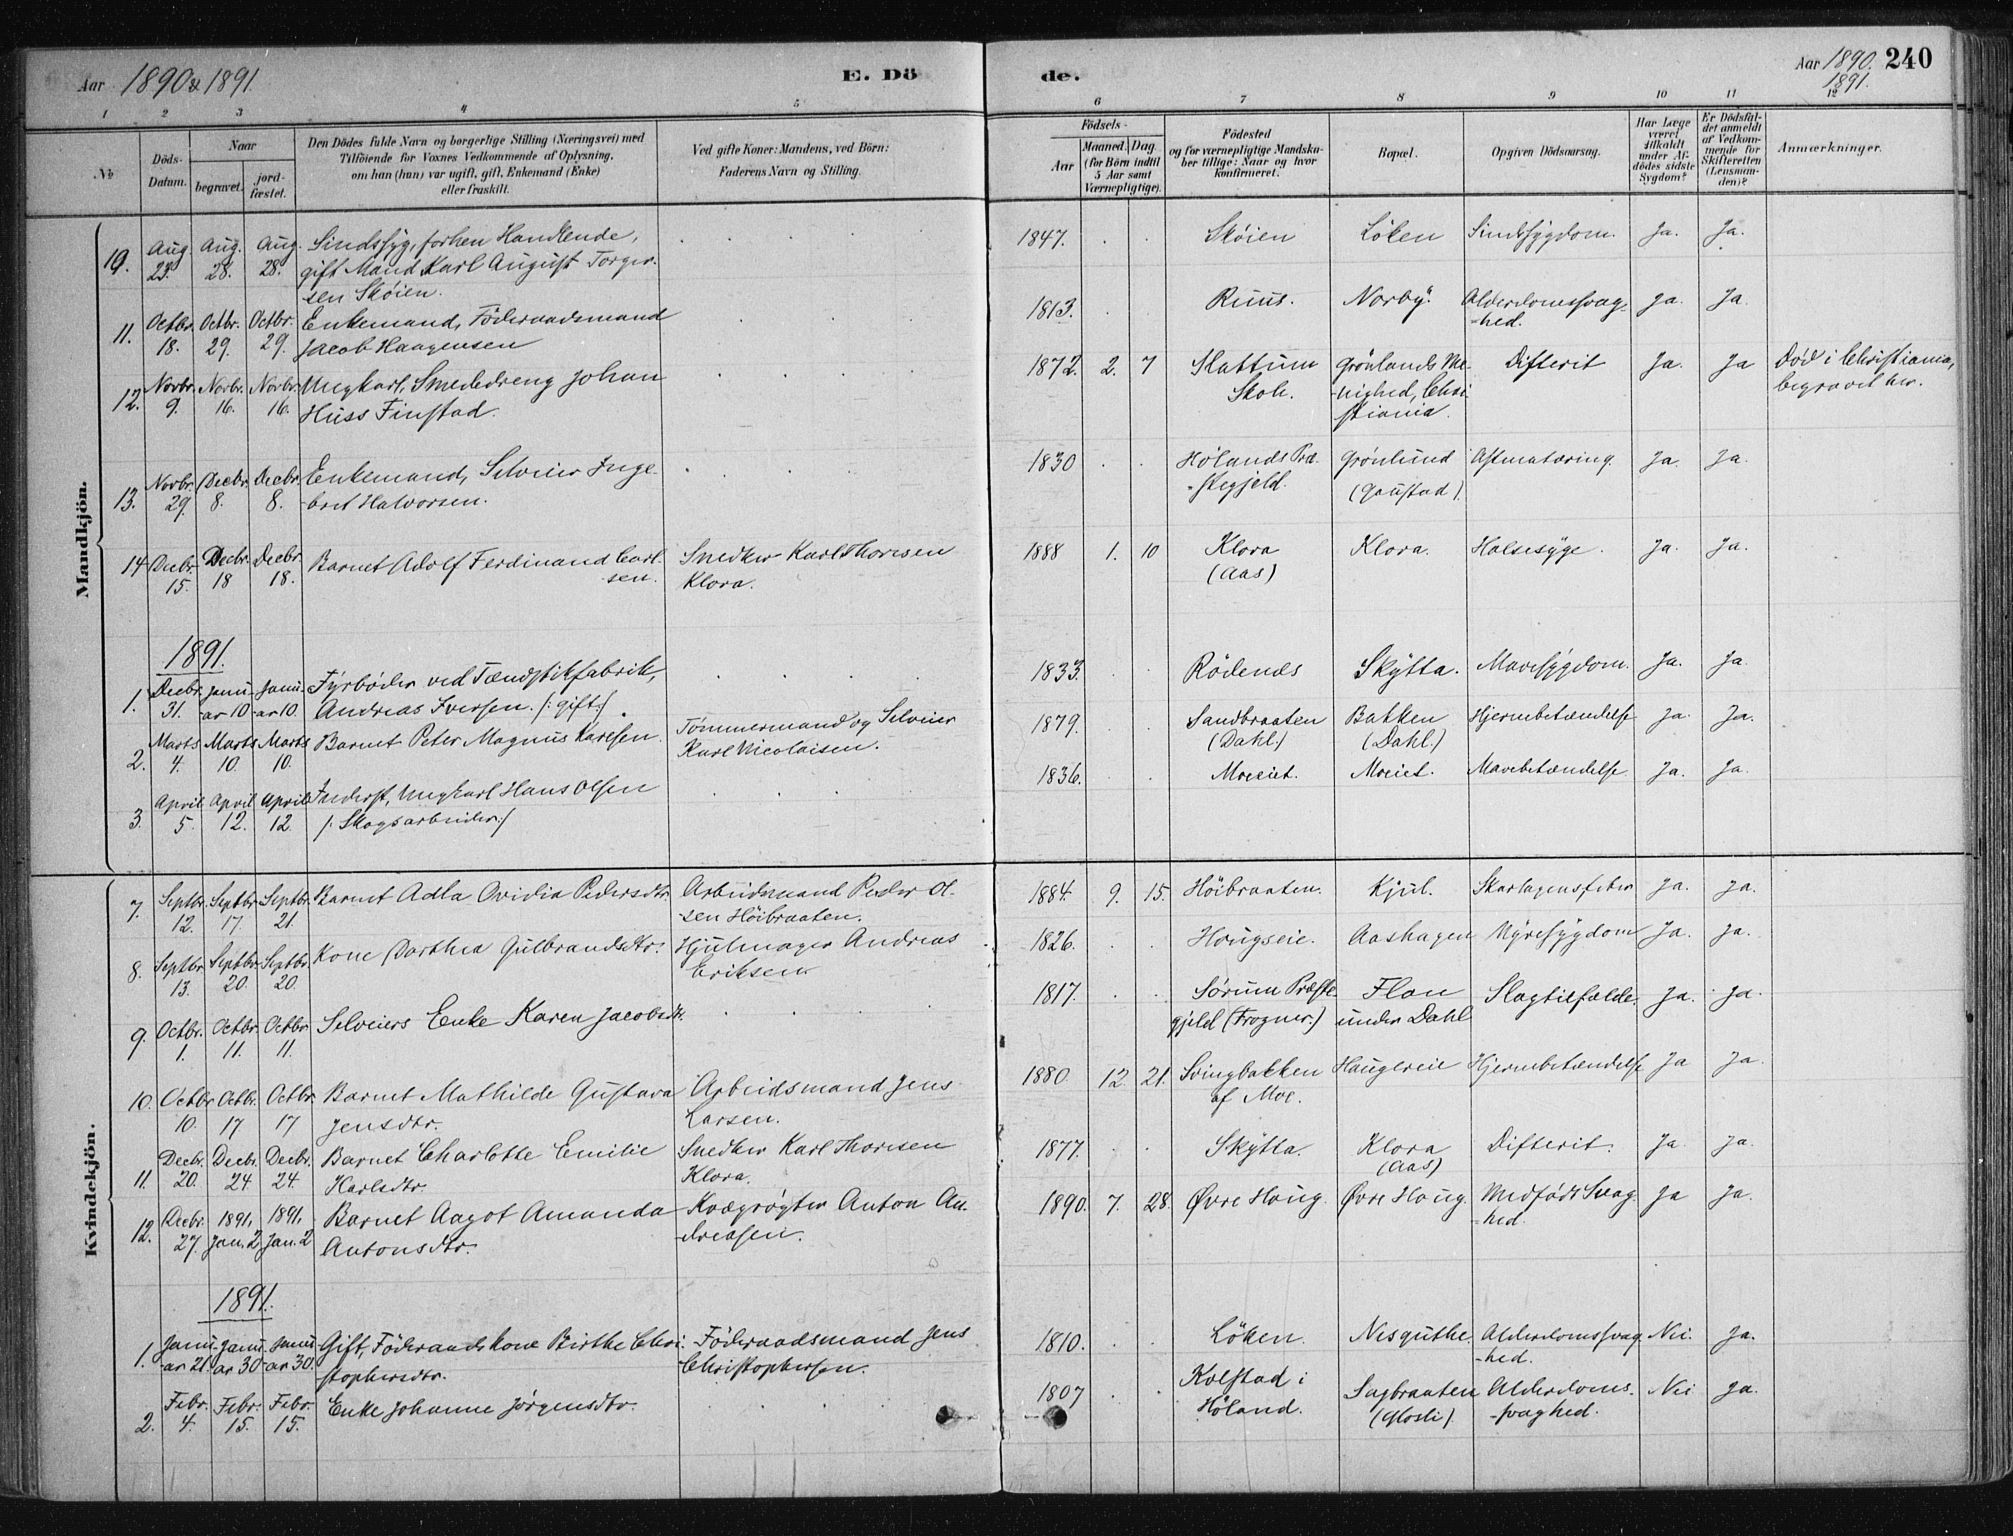 Aar 1890 & 1891.
E. Döde.
Aar 1890. 240
1891.
1 2 3 4 5 6 7 8 9 10 11 12
No
Döds-Datum.
Naar
begravet.
jordfæstet.
Den Dödes fulde Navn og borgerlige Stilling (Næringsvei) med
Tilföiende for Voxnes Vedkommende af Oplysning,
om han (hun) var ugift, gift, Enkemand (Enke)
eller fraskilt.
Ved gifte Koner: Mandens, ved Börn:
Faderens Navn og Stilling.
Födsels-
Aar
Maaned. Dag.
(for Börn indtil
5 Aar samt
Værnepligtige).
Födested
og for værnepligtige Mandskaber tillige: Naar og hvor
konfirmeret.
Bopæl.
Opgiven Dödsaarsag.
Har Læge været tilkaldt under Afdödes sidste Sygdom?
Er Dödsfaldet anmeldt af Vedkommende for Skifteretten (Lensmanden)?
Anmærkninger.
Mandkjön.
10. Aug. 23. Aug. 28. Aug. 28. Sindssyg, forhen Handlende, gift Mand Karl August Torgersen Skøien. 1847. Skøien Løken Sindssygdom. Ja. Ja.
11. Octbr. 18. Octbr. 29. Octbr. 29. Enkemand, Föderaadsmand Jacob Haagensen 1813. Ruus. Norby. Alderdomssvag-hed. Ja. Ja.
12. Novbr. 9. Novbr. 16. Novbr. 16. Ungkarl, Smededreng Johan Huss Finstad. 1872. 2. 7 Skattum Skole. Grønlands Me-nighed, Chri-stiania. Difterit Ja. Ja Død i Christiania, begravet her.
13. Novbr. 29. Decbr. 8. Decbr. 8. Enkemand, Selveier Ingebret Halvorsen. 1830 Hølands Præ-stegjeld. Grønlund (Goustad). Astmatæring. Ja. Ja.
14 Decbr. 15. Decbr. 18 Decbr. 18. Barnet Adolf Ferdinand Carlsen. Snedker Karl Thoresen Klora. 1888 1. 10 Klora (Aas) Klora. Halsesyge. Ja. Ja.
1891.
1. Decbr. 31. Janu-ar 10 Janu-ar 10. Fyrbøder ved Tændstikfabrik, Andreas Iversen. /: gift :/ 1833. Rödenæs Skytta. Mavesygdom. Ja. Ja.
2. Marts 4. Marts 10. Marts 10. Barnet Peter Magnus Karlsen. Tømmermand og Selveier Karl Nicolaisen. 1879. Sandbraaten (Dahl.) Bakken (Dahl.) Hjernebetændelse Ja Ja.
3. April 5. April 12. April 12. Inderst, Ungkarl Hans Olsen /: Skogsarbeider :/ 1836. Moeiet. Moeiet. Mavebetændelse Ja. Ja.
Kvindekjön.
7. Septbr. 12. Septbr. 17. Septbr. 21. Barnet Adla Ovidia Pedersdtr. Arbeidsmand Peder Olsen Höibraaten. 1884. 9. 15. Höibraaten. Kjul. Skarlagensfeber Ja. Ja.
8. Septbr. 13. Septbr. 20. Septbr. 20. Kone Dorthea Gulbrandsdtr. Hjulmager Andreas Eriksen. 1826. Haugseie. Aashagen Nyresygdom Ja. Ja.
9. Octbr. 1. Octbr. 11. Octbr. 11. Selveiers Enke Karen Jacobsdtr. 1817. Sørum Præste-gjeld (Frogner.) Flan under Dahl Slagtilfælde. Ja. Ja.
10. Octbr 10. Octbr. 17 Octbr. 17 Barnet Mathilde Gustava Jensdtr. Arbeidsmand Jens Larsen. 1880. 12. 21. Svingbakken af Moe. Haugereie Hjernebetændelse Ja Ja.
11. Decbr. 20. Decbr. 24 Decbr. 24. Barnet Charlotte Emilie Karlsdtr. Snedker Karl Thoresen Klora. 1877. Skytta. Klora (Aas) Difterit. Ja Ja.
12. Decbr. 27. 1891, Jan. 2 1891, Jan. 2 Barnet Aagot Amanda Antonsdtr. Kvægrøgter Anton Andreasen. 1890. 7. 28. Øvre Haug. Øvre Haug. Medfödt Svag-hed. Ja Ja.
1891.
1. Janu-ar 21. Janu-ar 30 Janu-ar 30. Gift, Föderaadskone Birthe Christophersdtr. Föderaadsmand Jens Christophersen. 1810. Løken. Nesguthe. Alderdomssvag-hed. Nei. Ja.
2. Febr. 4. Febr. 15. Febr. 15. Enke Johanne Jørgensdtr. 1807 Kolstad i Høland. Sagbraaten (Glosli). Alderdoms-svaghed. Nei Ja.